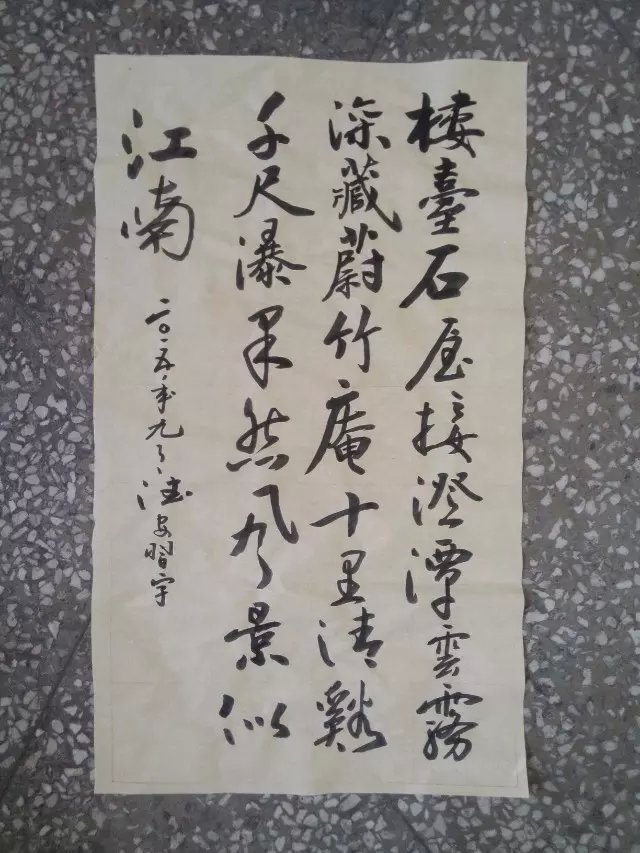 楼臺石屋接澄潭雲霧
深藏蔚竹庵十里清谿
千尺瀑果然風景似
江南
二〇一五年九月 建安習字